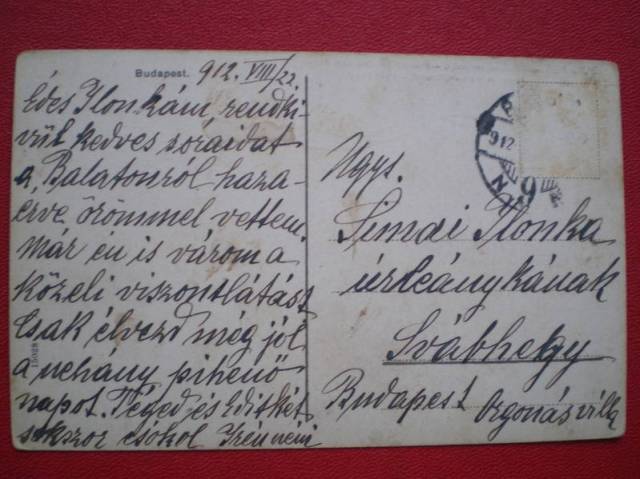 Budapest. 912. VIII/22.
Édes Ilonkám, rendki-
vül kedves soraidat
a Balatonról haza-
érve örömmel vettem.
Már én is várom a
közeli viszontlátást
Csak élvezd még jól
a néhány pihenő
napot. Téged és Editkét
sokszor csókol Irén néni
912
9
Ngys.
Simai Ilonka
úrleánykának
Svábhegy
Budapest Orgonás villa